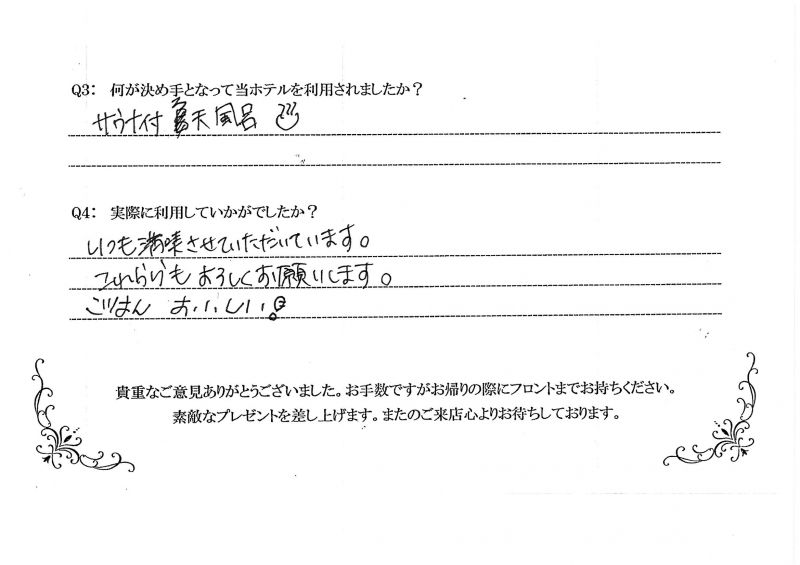 Q3： 何が決め手となって当ホテルを利用されましたか？
サウナ付 露天風呂
Q4： 実際に利用していかがでしたか？
いつも満喫させていただいています。
これからもよろしくお願いします。
ごはん おいしい！
貴重なご意見ありがとうございました。お手数ですがお帰りの際にフロントまでお持ちください。
素敵なプレゼントを差し上げます。またのご来店心よりお待ちしております。